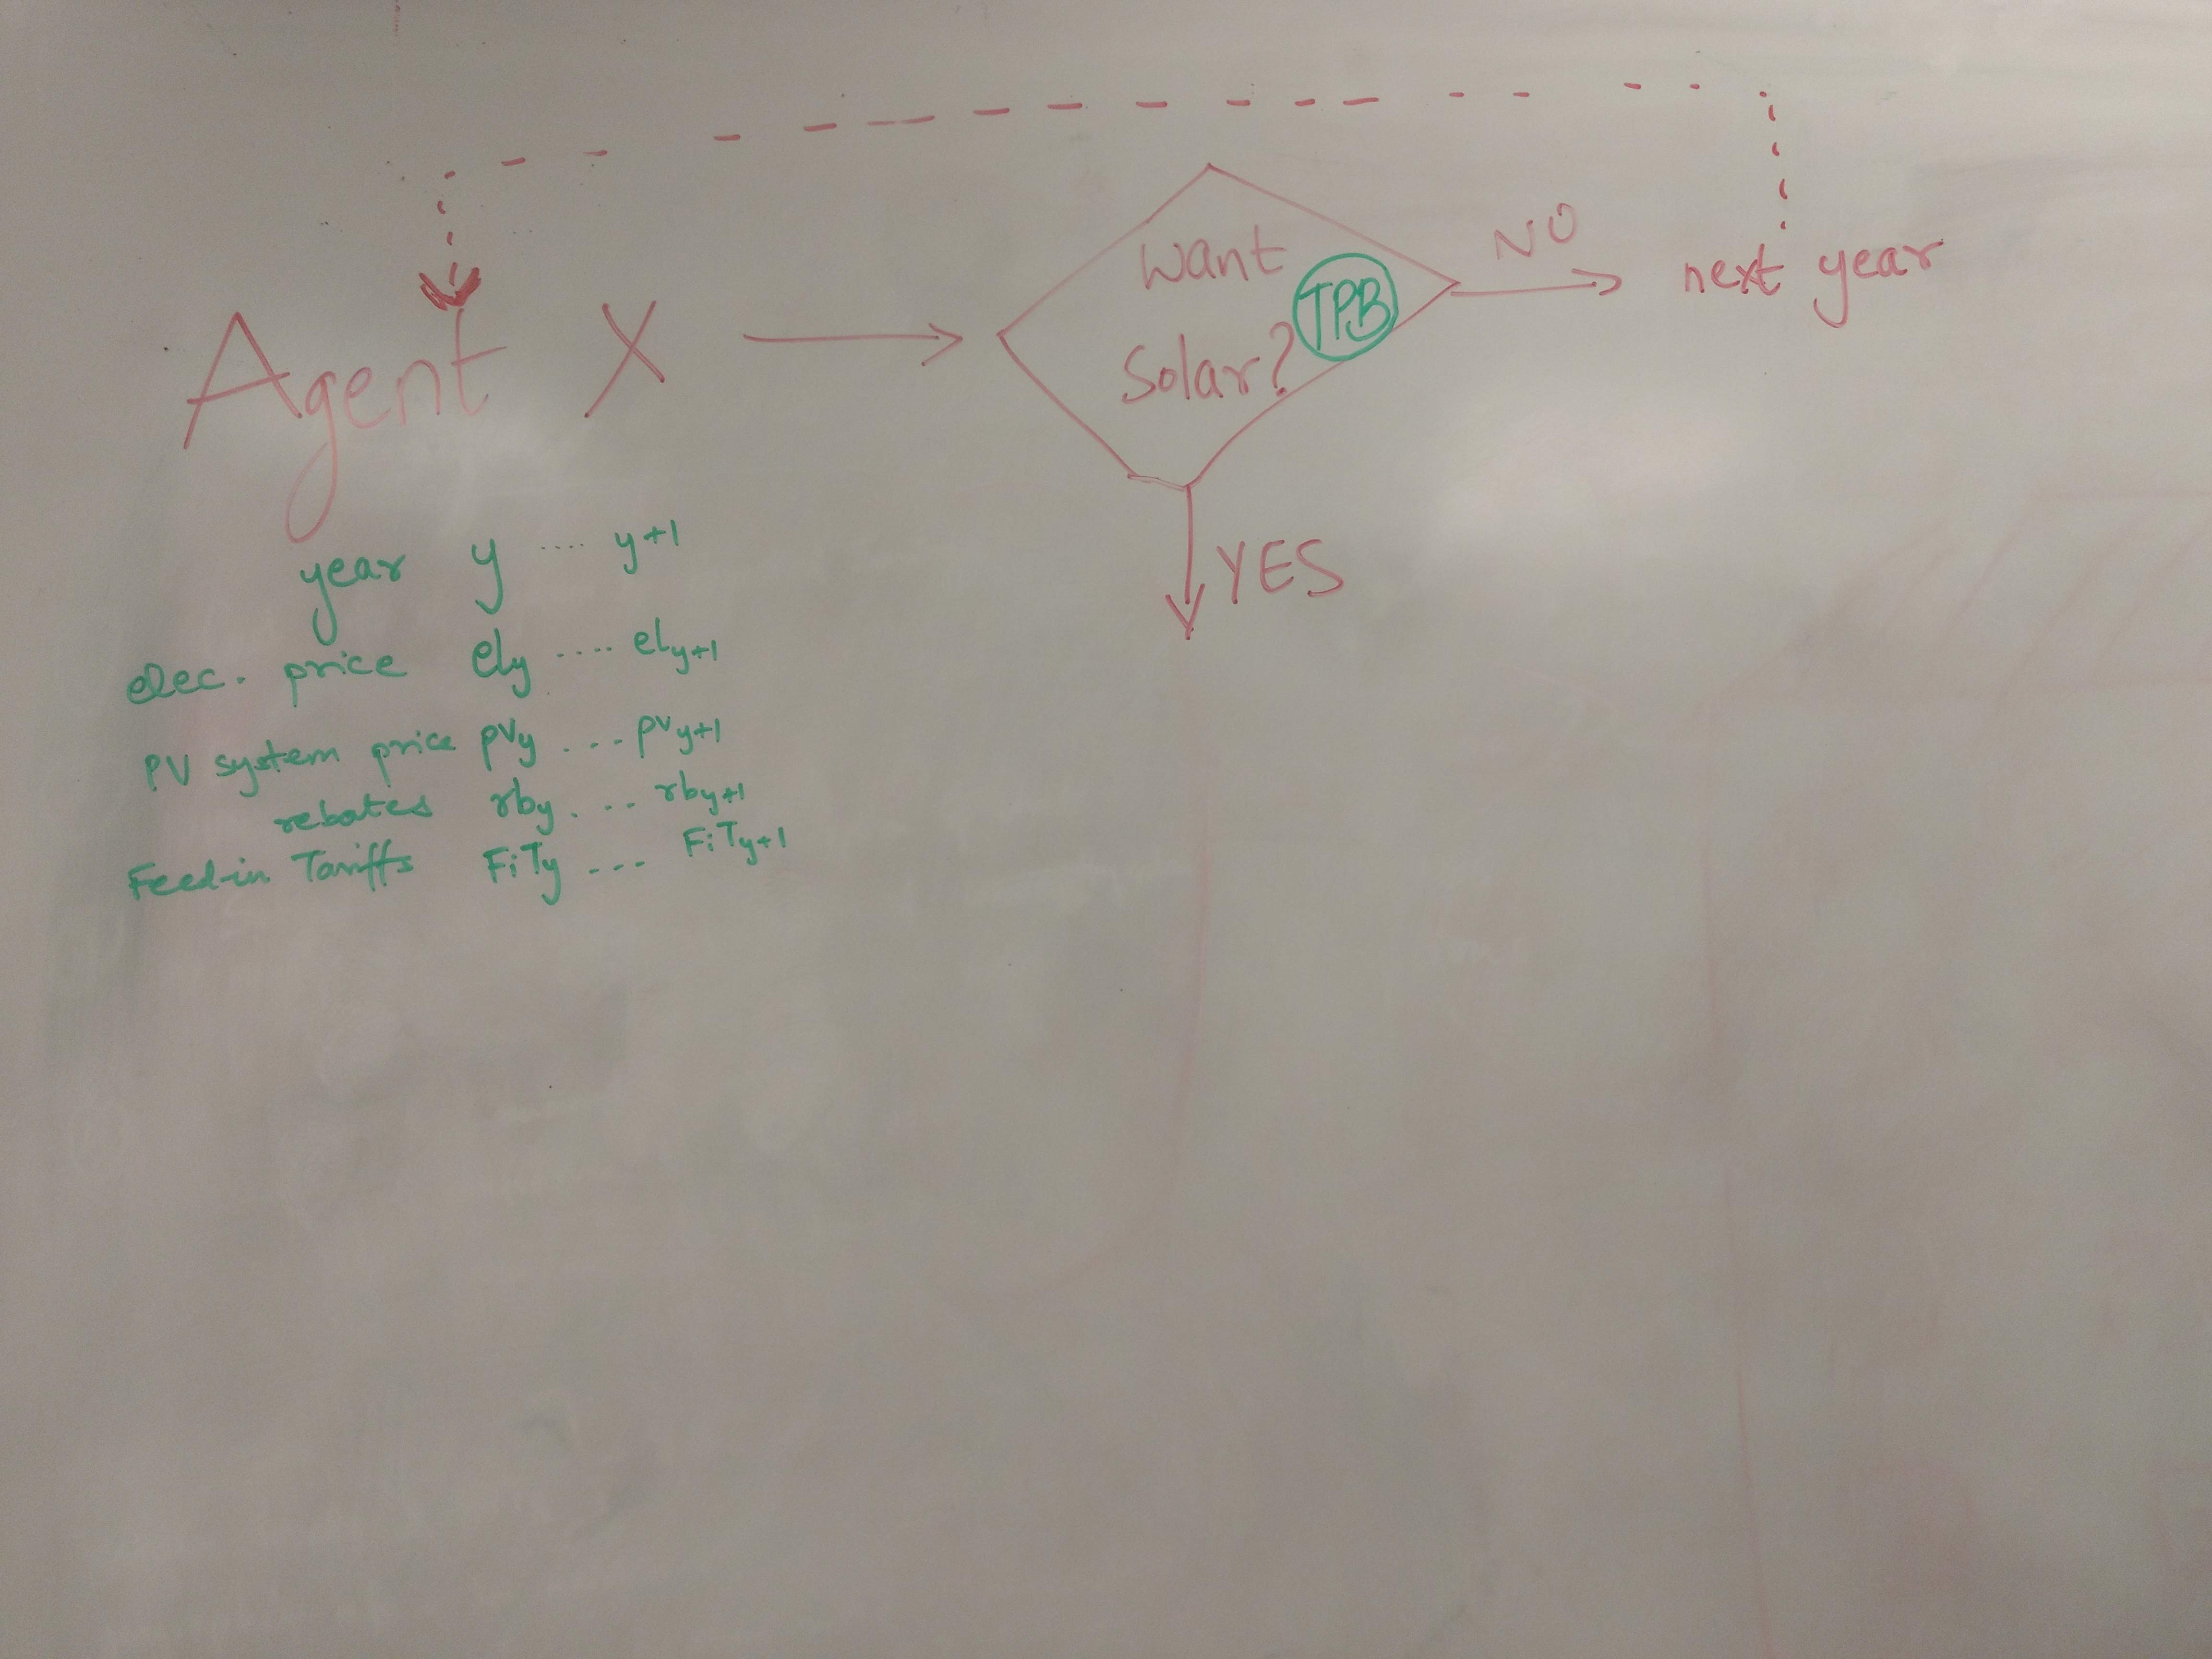 Agent X
want
Solar?
TPB
NO
next year
YES
year y .... y+1
elec. price ely .... ely+1
PV system price pvy ... pvy+1
rebates rby ... rby+1
Feed-in Tariffs FiTy ... FiTy+1